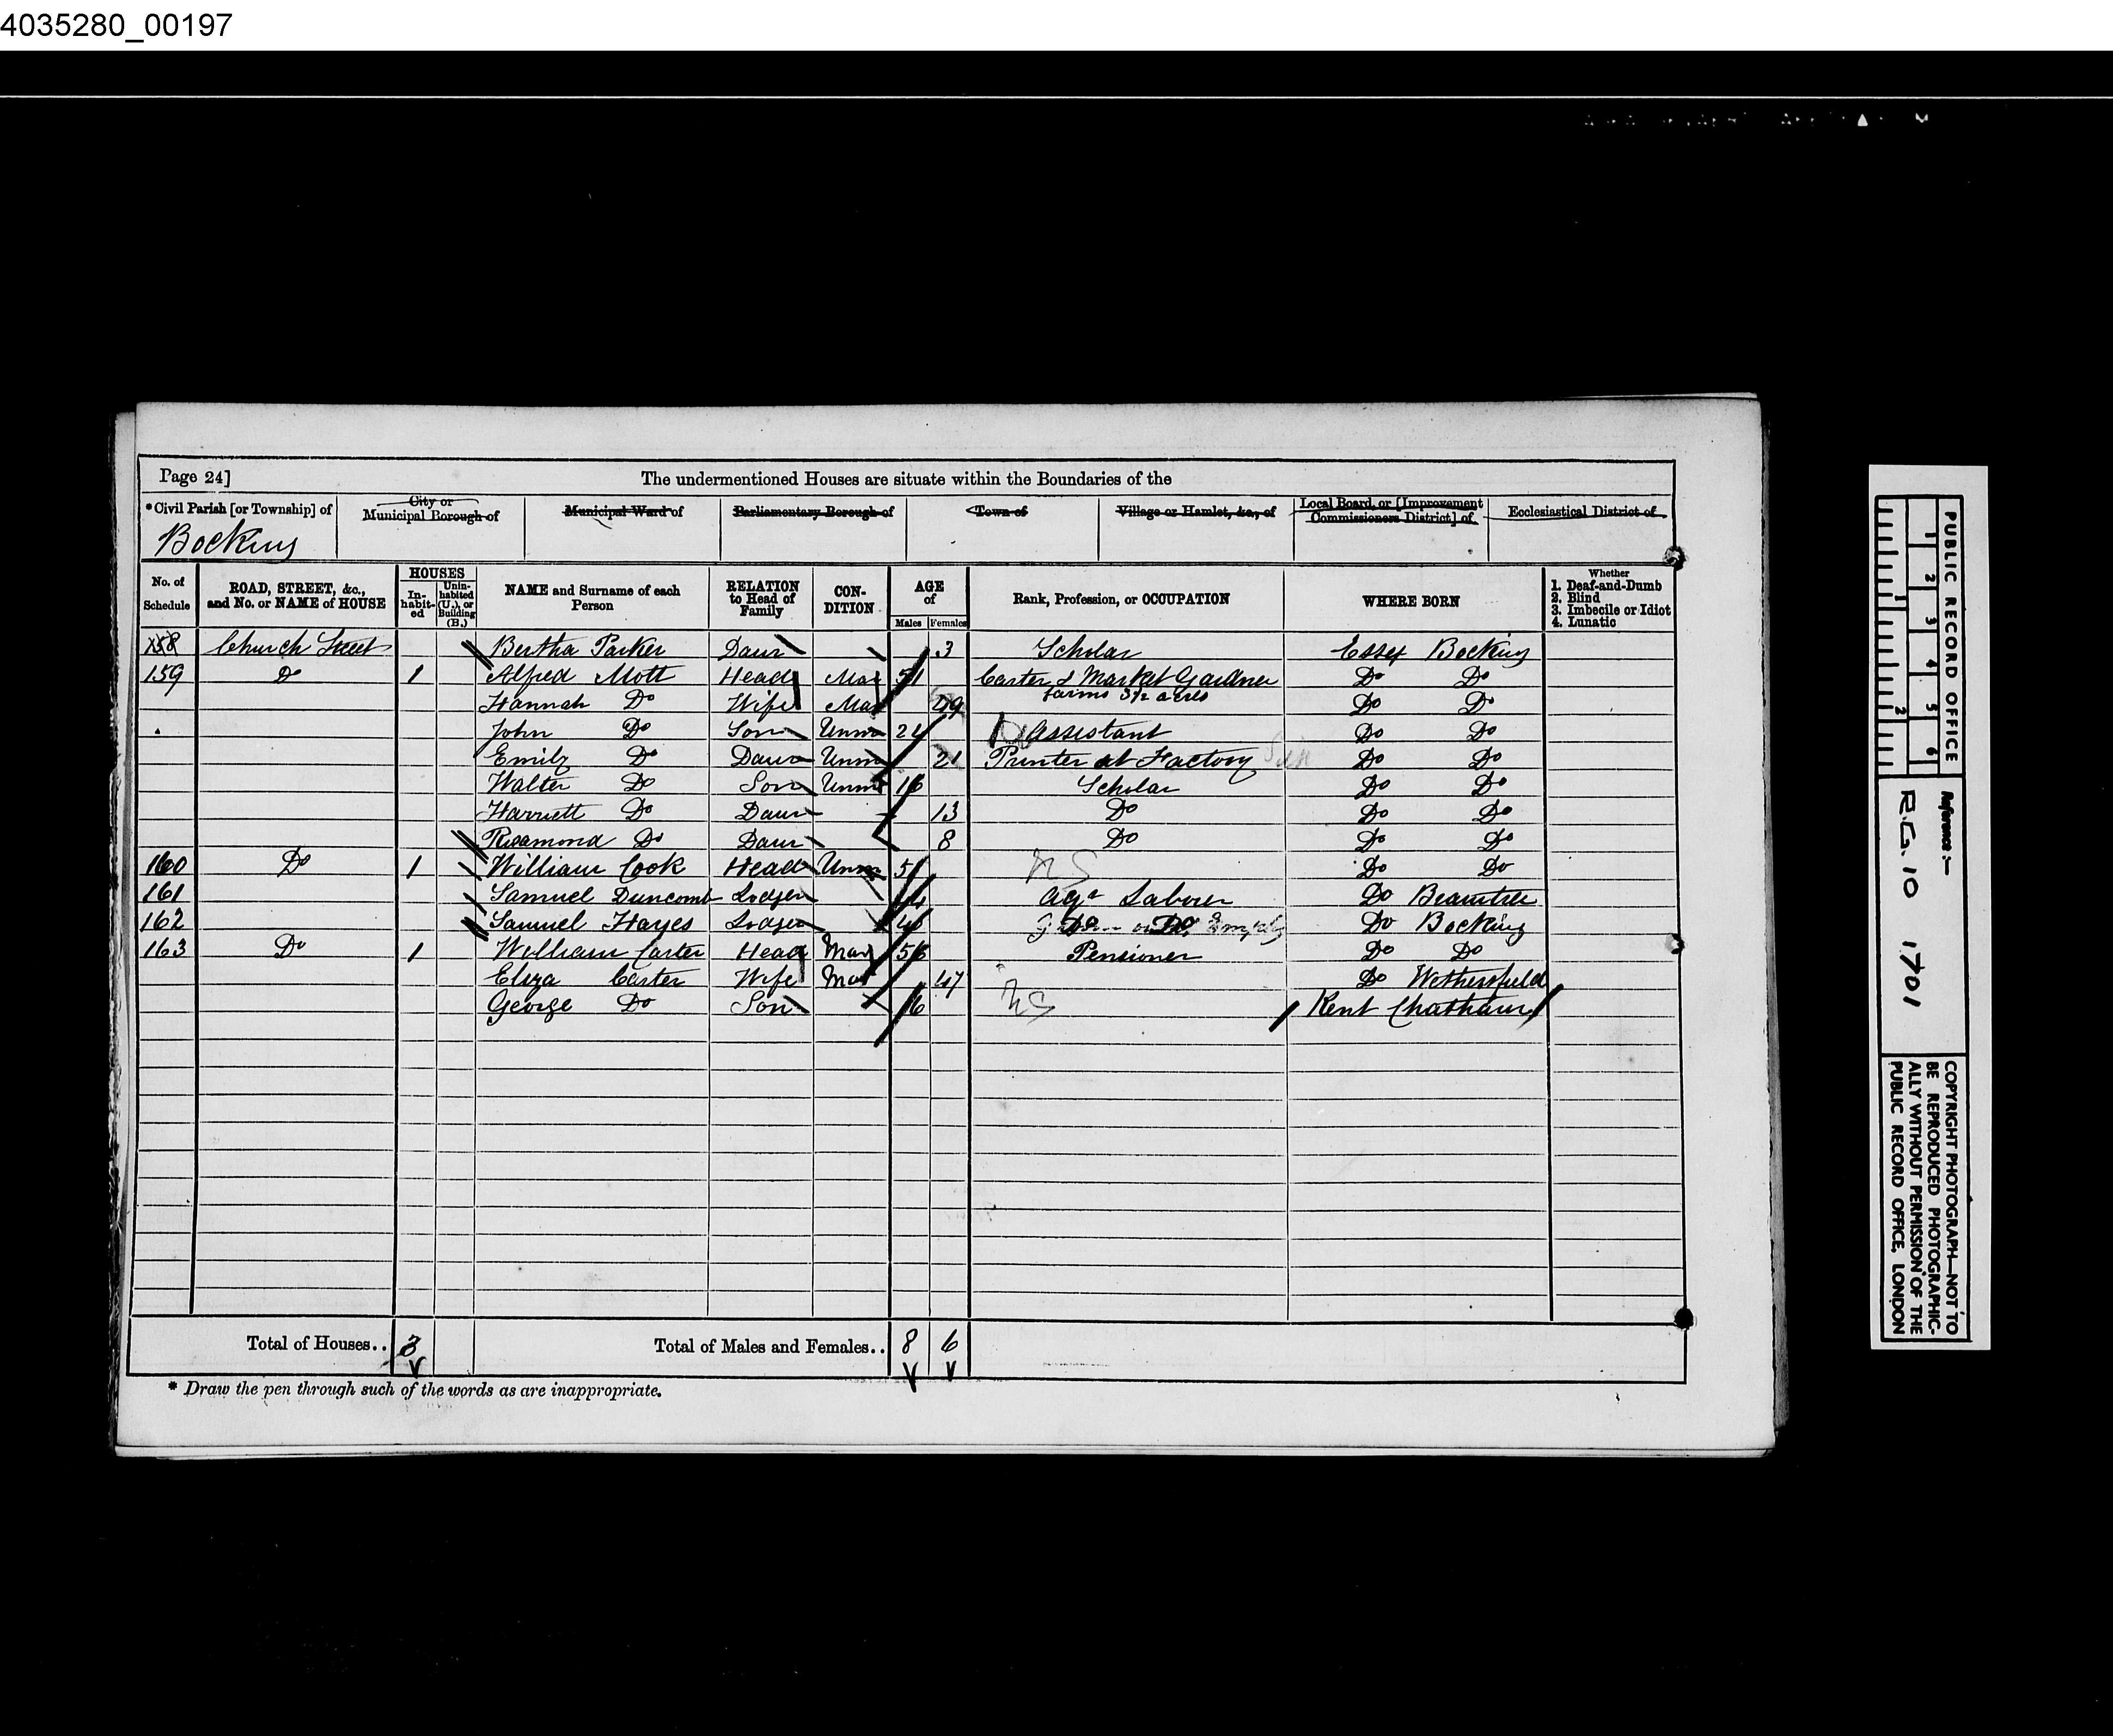 4035280_00197
Page 24] The undermentioned Houses are situate within the Boundaries of the
*Civil Parish [or Township] of City or Municipal Borough of Municipal Ward of Parliamentary Borough of Town of Village or Hamlet, &c., of Local Board, or [Improvement Commissioners District] of Ecclesiastical District of
Bocking
No. of Schedule ROAD, STREET, &c., and No. or NAME of HOUSE HOUSES Inhabited Uninhabited (U.), or Building (B.) NAME and Surname of each Person RELATION to Head of Family CONDITION AGE of Males Females Rank, Profession, or OCCUPATION WHERE BORN Whether 1. Deaf-and-Dumb 2. Blind 3. Imbecile or Idiot 4. Lunatic
158 Church Street Bertha Parker Daur 3 Scholar Essex Bocking
159 Do 1 Alfred Mott Head Mar 51 Carter & Market Gardner Do Do
farms 3½ acres
Hannah Do Wife Mar 49 Do Do
John Do Son Unm 24 Assistant Do Do
Emily Do Daur Unm 21 Printer at Factory Silk Do Do
Walter Do Son Unm 16 Scholar Do Do
Harriett Do Daur 13 Do Do Do
Rosamond Do Daur 8 Do Do Do
160 Do 1 William Cook Head Unm 51 NS Do Do
161 Samuel Duncomb Lodger Agr Laborer Do Braintree
162 Samuel Hayes Lodger 46 Do Do Do Bocking
163 Do 1 William Carter Head Mar 56 Pensioner Do Do
Eliza Carter Wife Mar 47 Do Wethersfield
George Do Son 16 NS Kent Chatham
Total of Houses.. 3 Total of Males and Females.. 8 6
* Draw the pen through such of the words as are inappropriate.
PUBLIC RECORD OFFICE
1 2 3 4 5 6
1 2
Reference:—
R.G. 10 1701
COPYRIGHT PHOTOGRAPH—NOT TO
BE REPRODUCED PHOTOGRAPHIC-
ALLY WITHOUT PERMISSION OF THE
PUBLIC RECORD OFFICE, LONDON